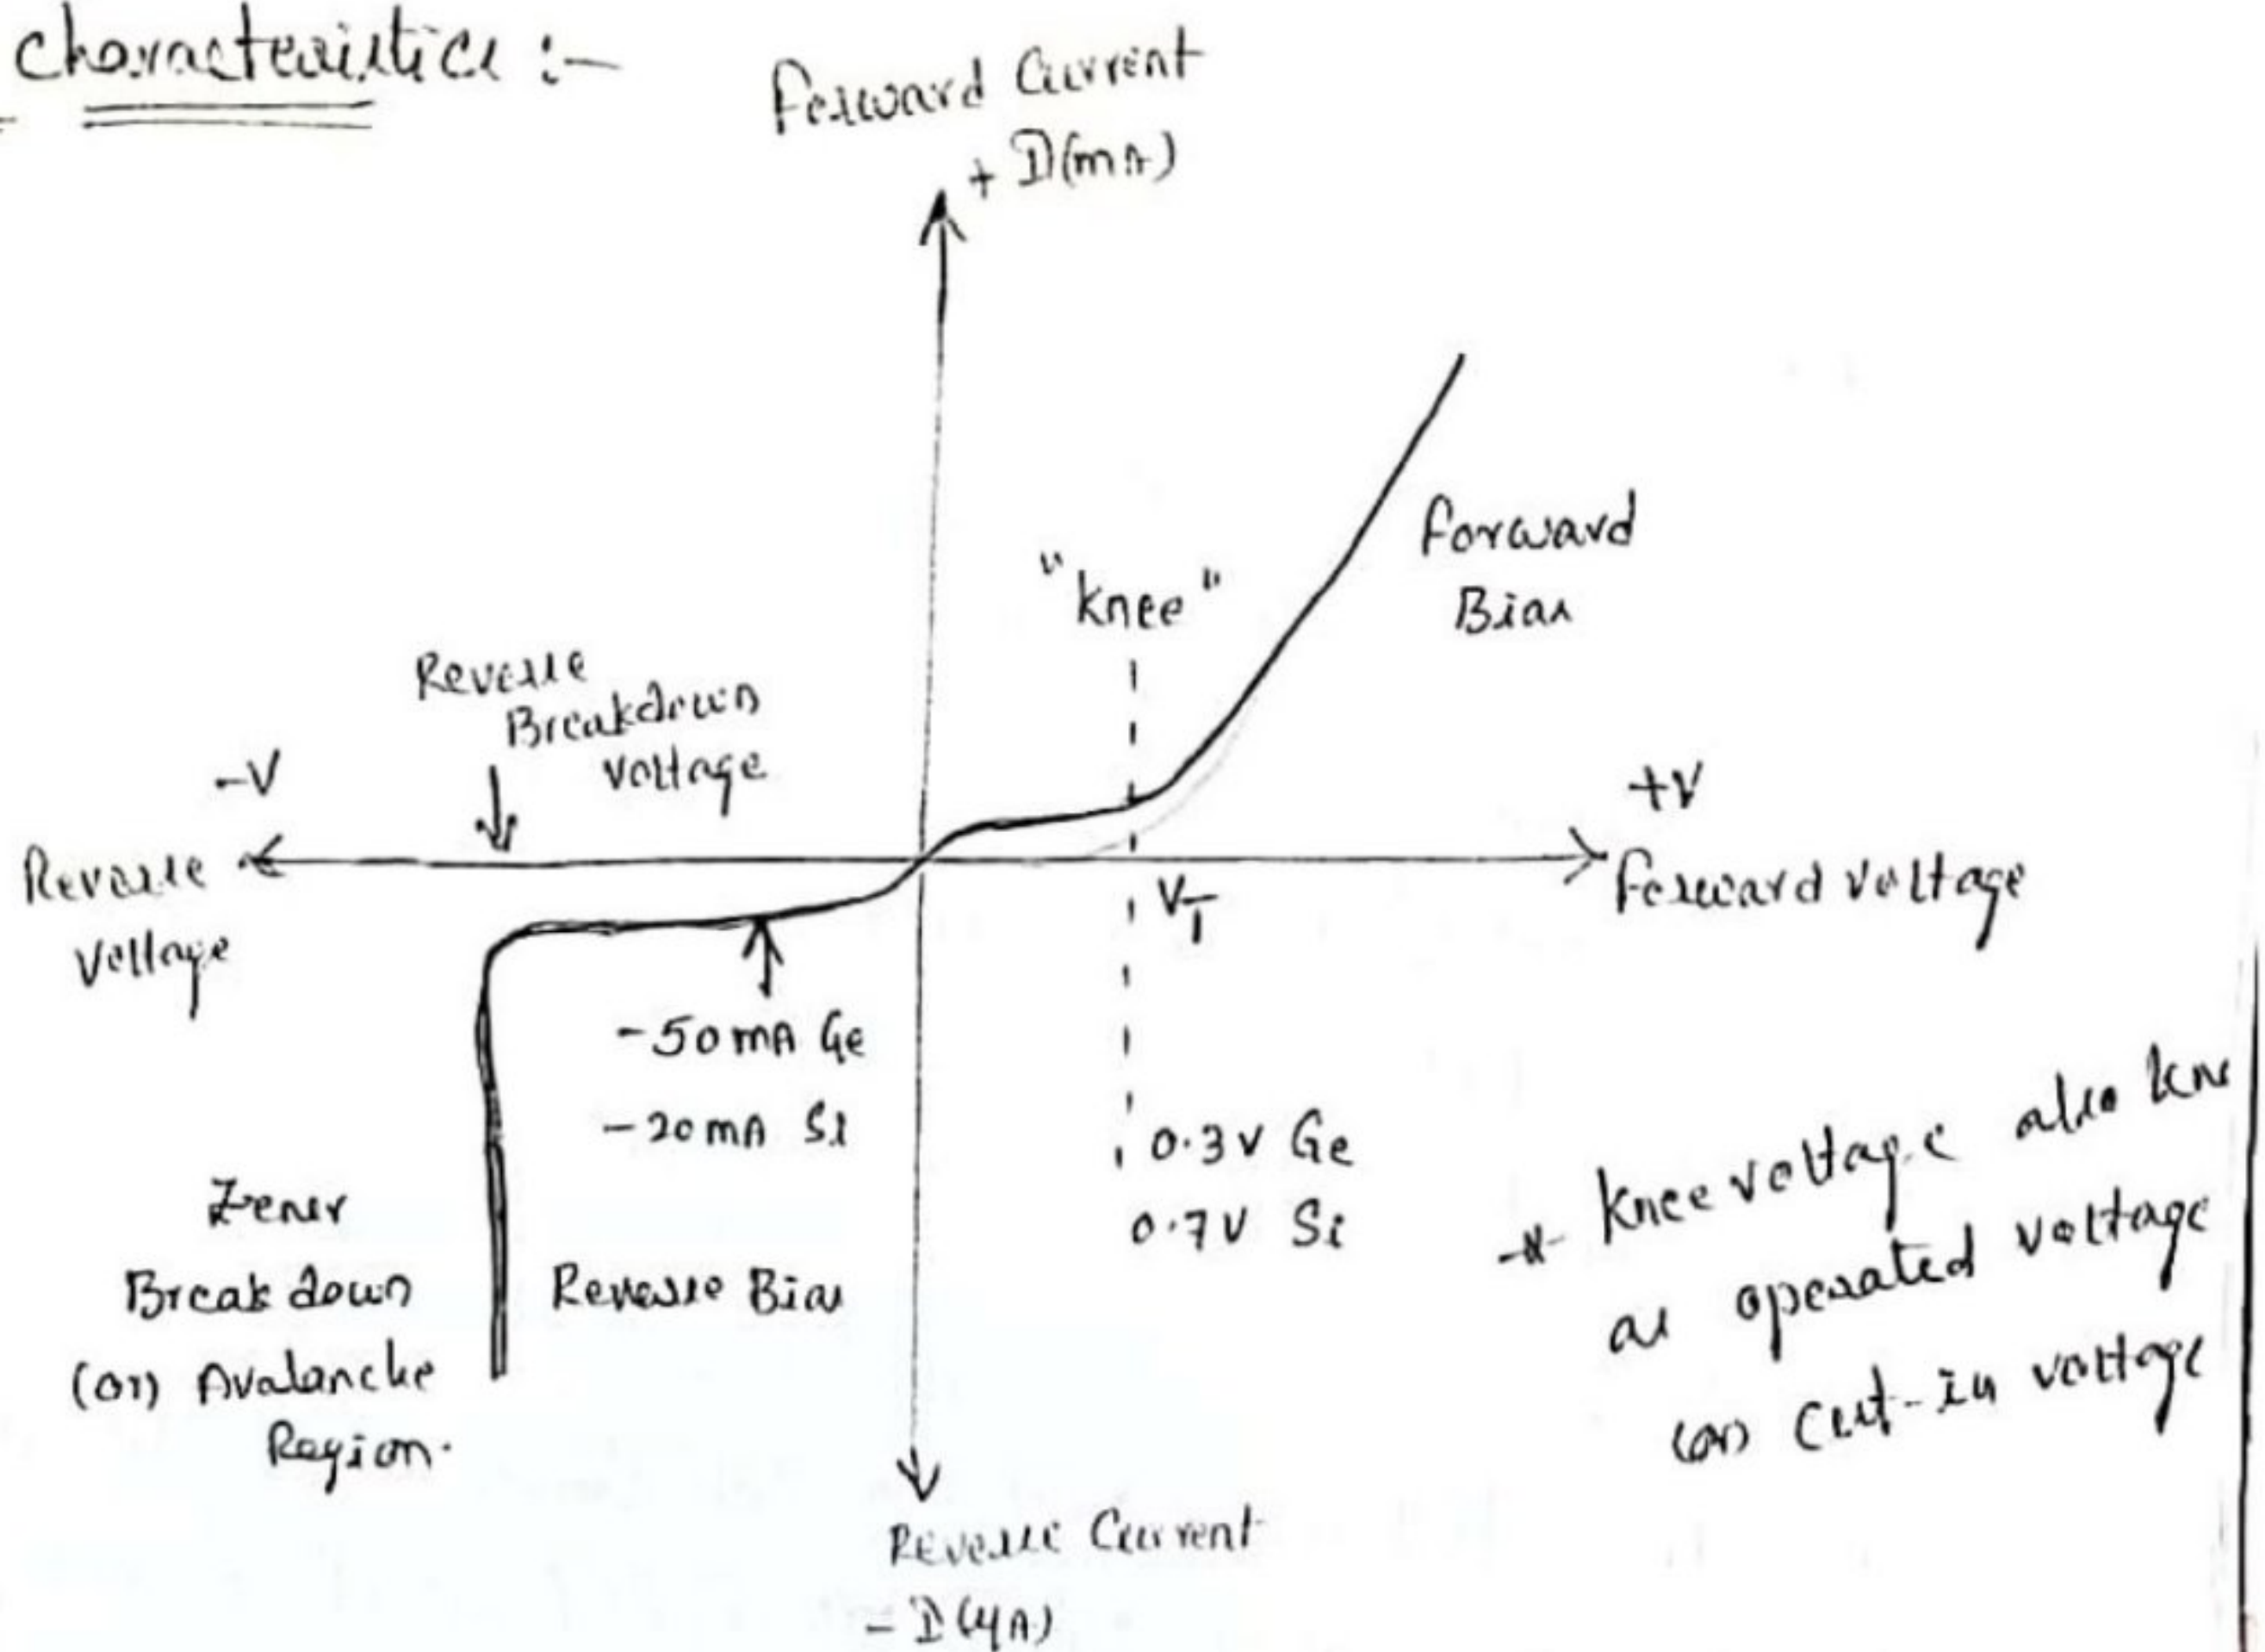 characteristics :-
Forward Current
+ I(mA)
"knee"
Forward
Bias
Reverse
Breakdown
voltage
-V
+V
Reverse
Voltage
Forward voltage
VT
-50mA Ge
-20mA Si
0.3V Ge
0.7V Si
Zener
Breakdown
(or) Avalanche
Region.
Reverse Bias
* Knee voltage also kn
as operated voltage
(or) Cut-in voltage
Reverse Current
- I(μA)